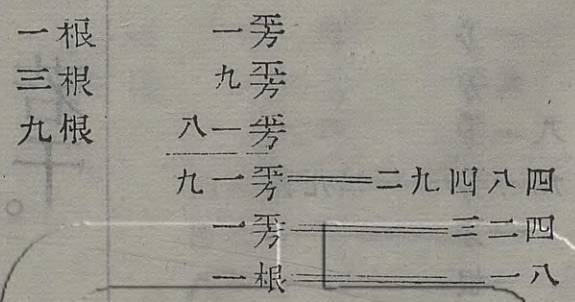 一根 一平方
三根 九平方
九根 八一平方
九一平方══二九四八四
一平方══三二四
一根══一八